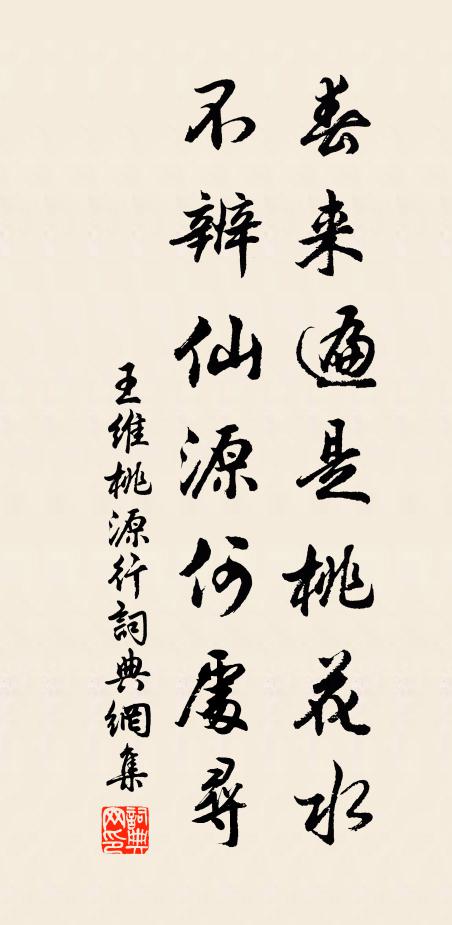 春来遍是桃花水
不辨仙源何處尋
王維桃源行詞典網集
詞典網印